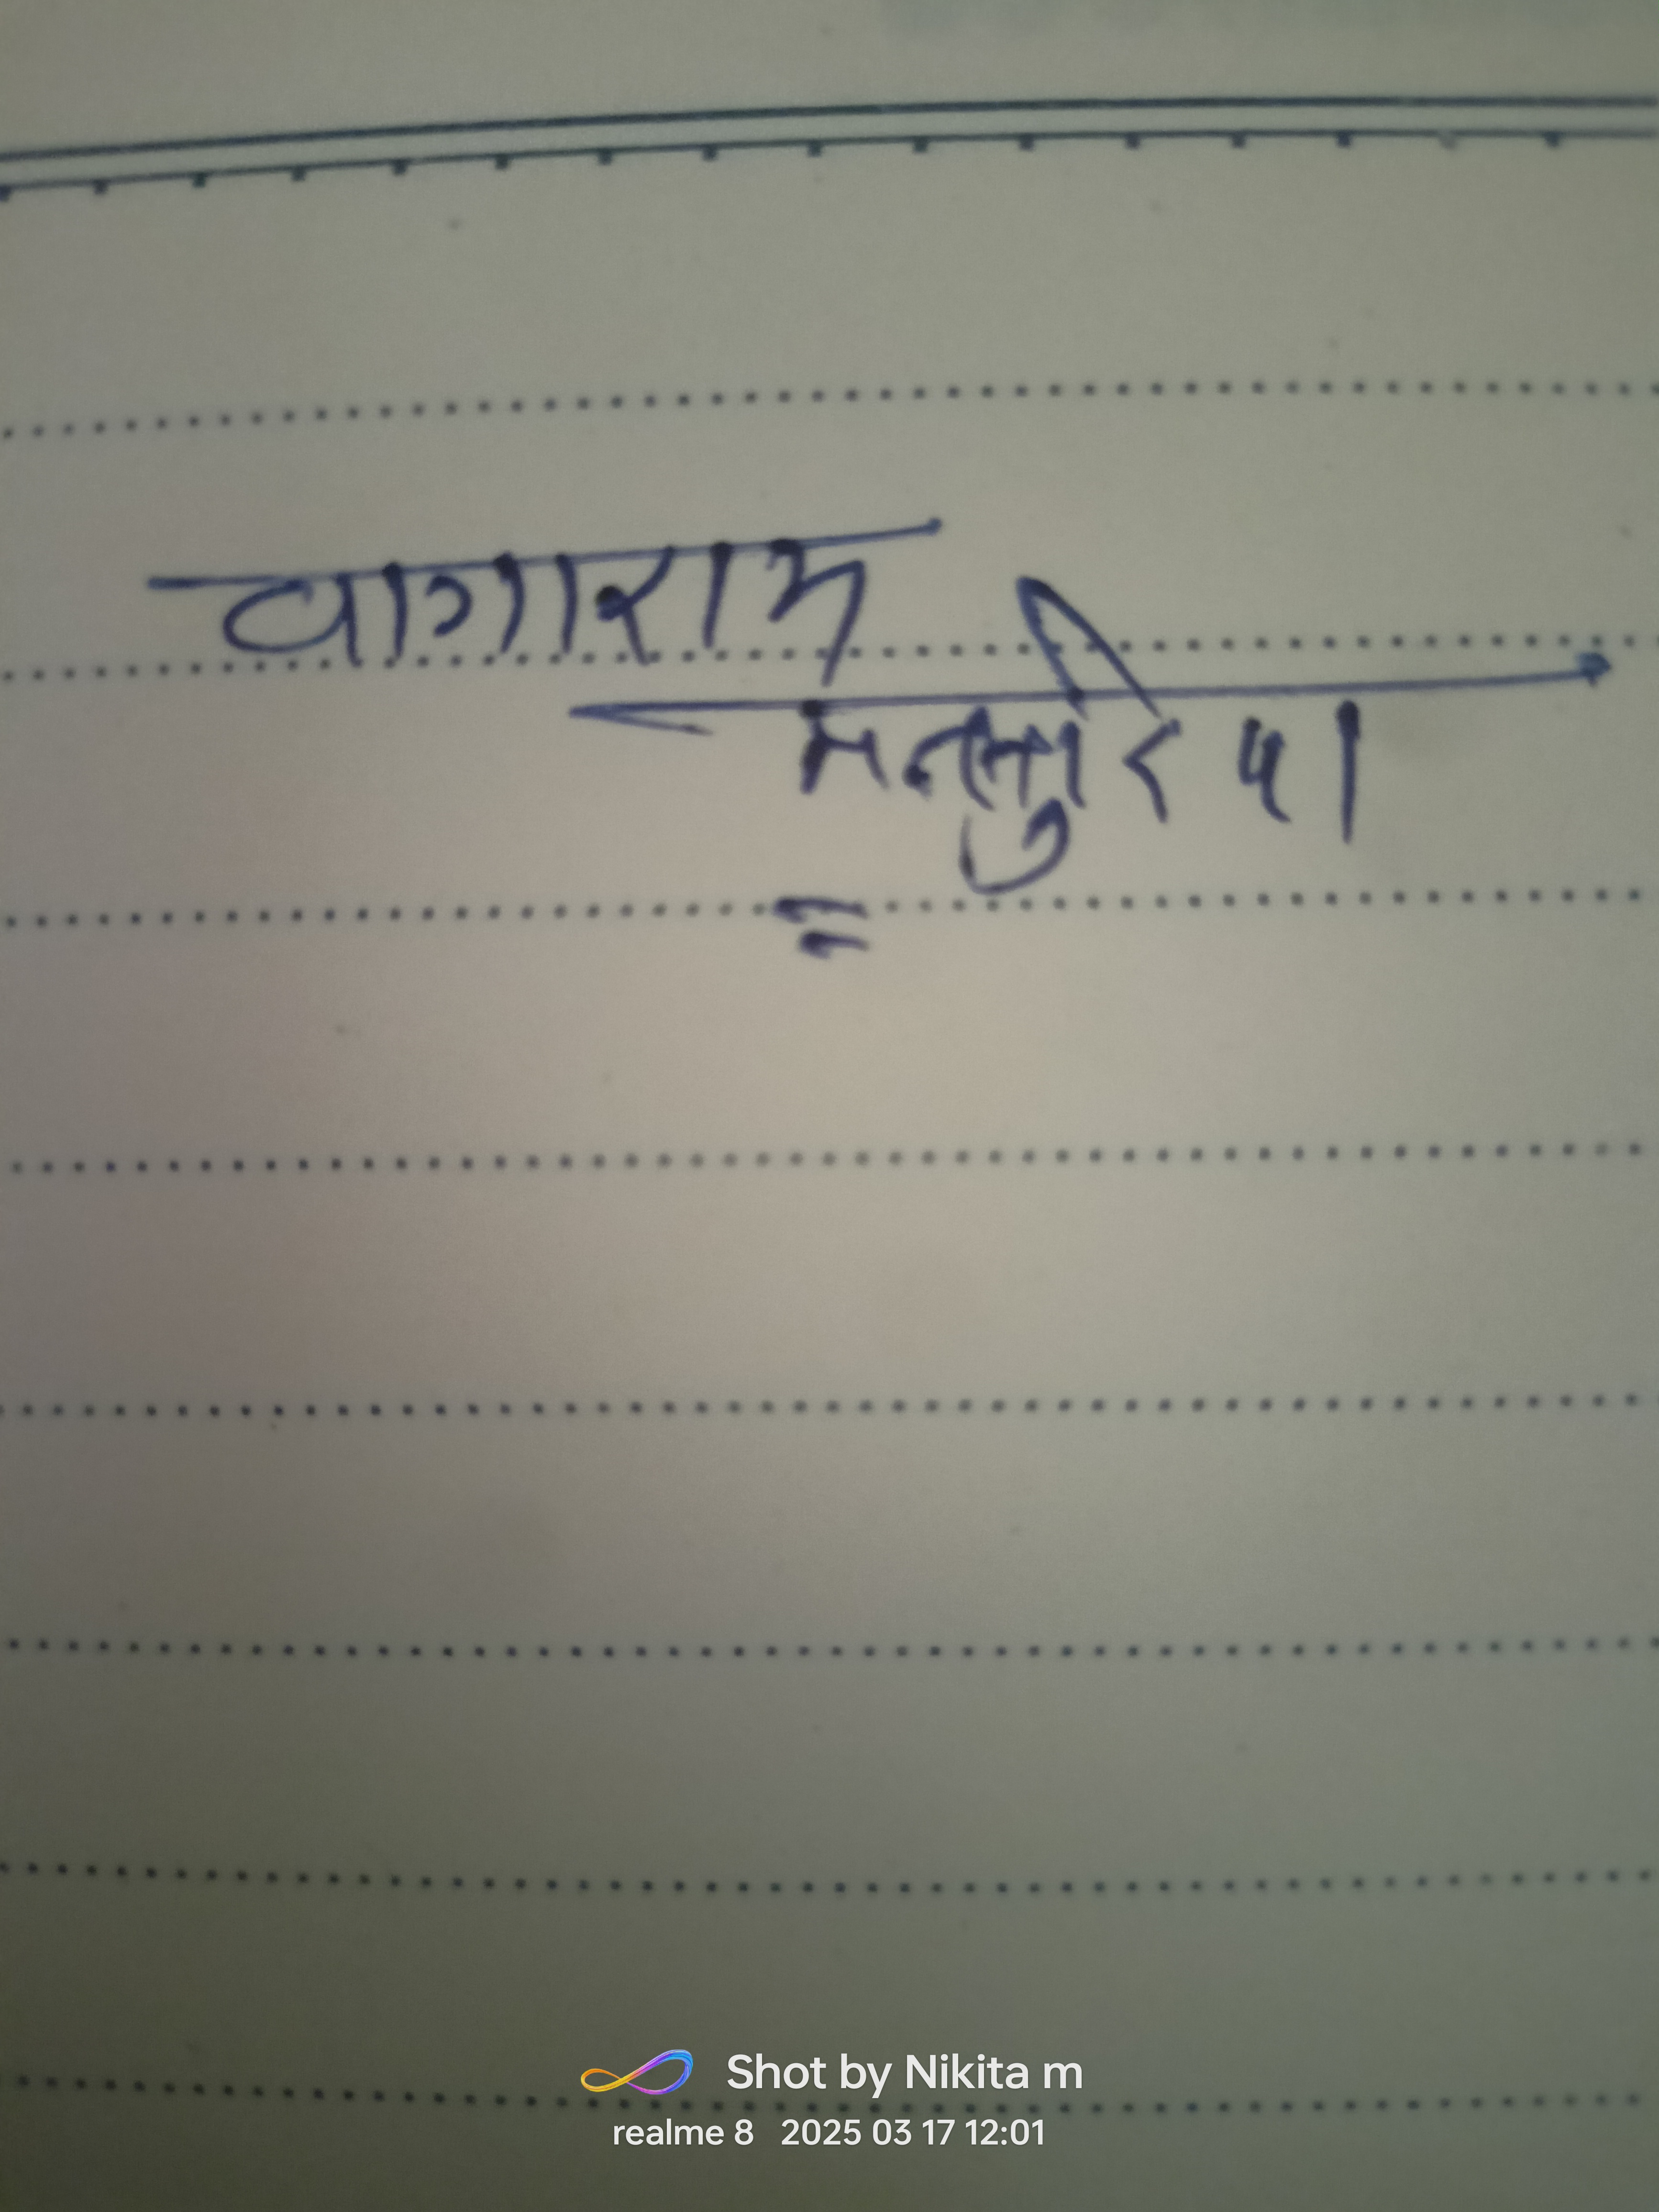 वागाराम
Shot by Nikita m
realme 8 2025 03 17 12:01